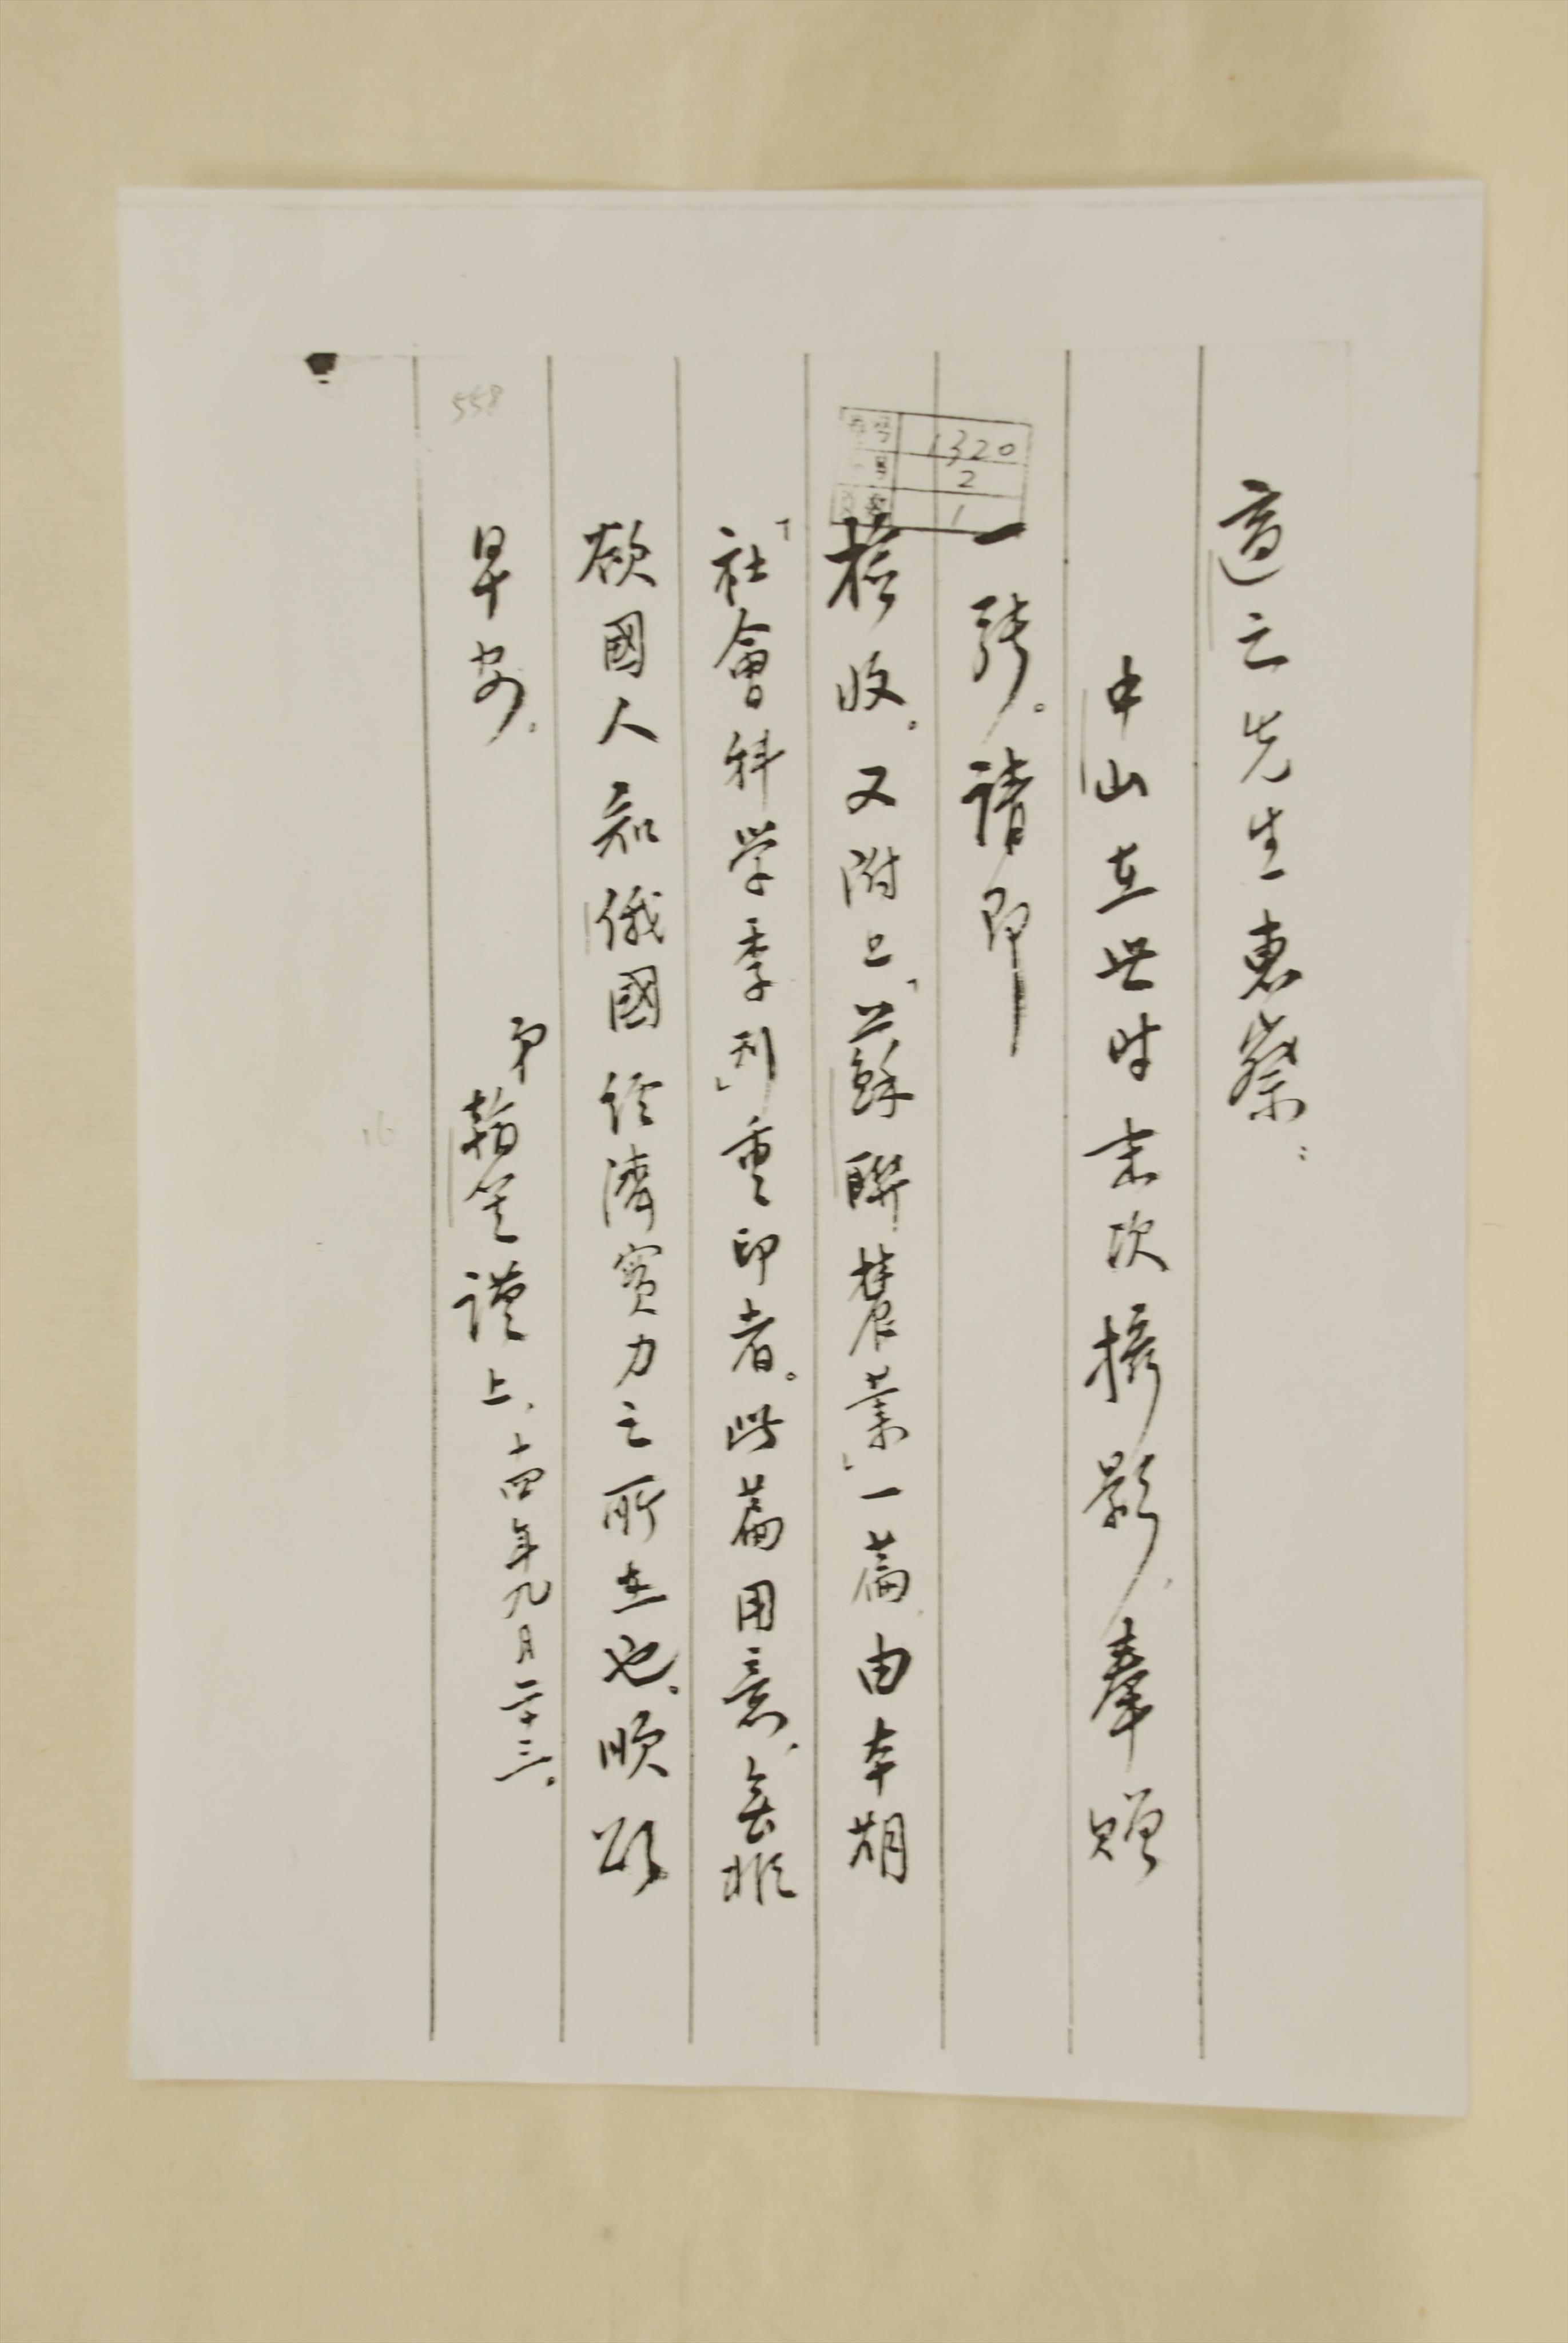 適之先生惠察：
中山在世時末次攝影，奉贈
一張。請即
檢收。又附上「蘇聯農業」一篇，由本期
「社會科学季刊」重印者。此篇用意，無非
欲國人知俄國經濟實力之所在也。順頌
早安。
弟翰笙謹上，十四年九月二十三。
1320
2
1
558
16